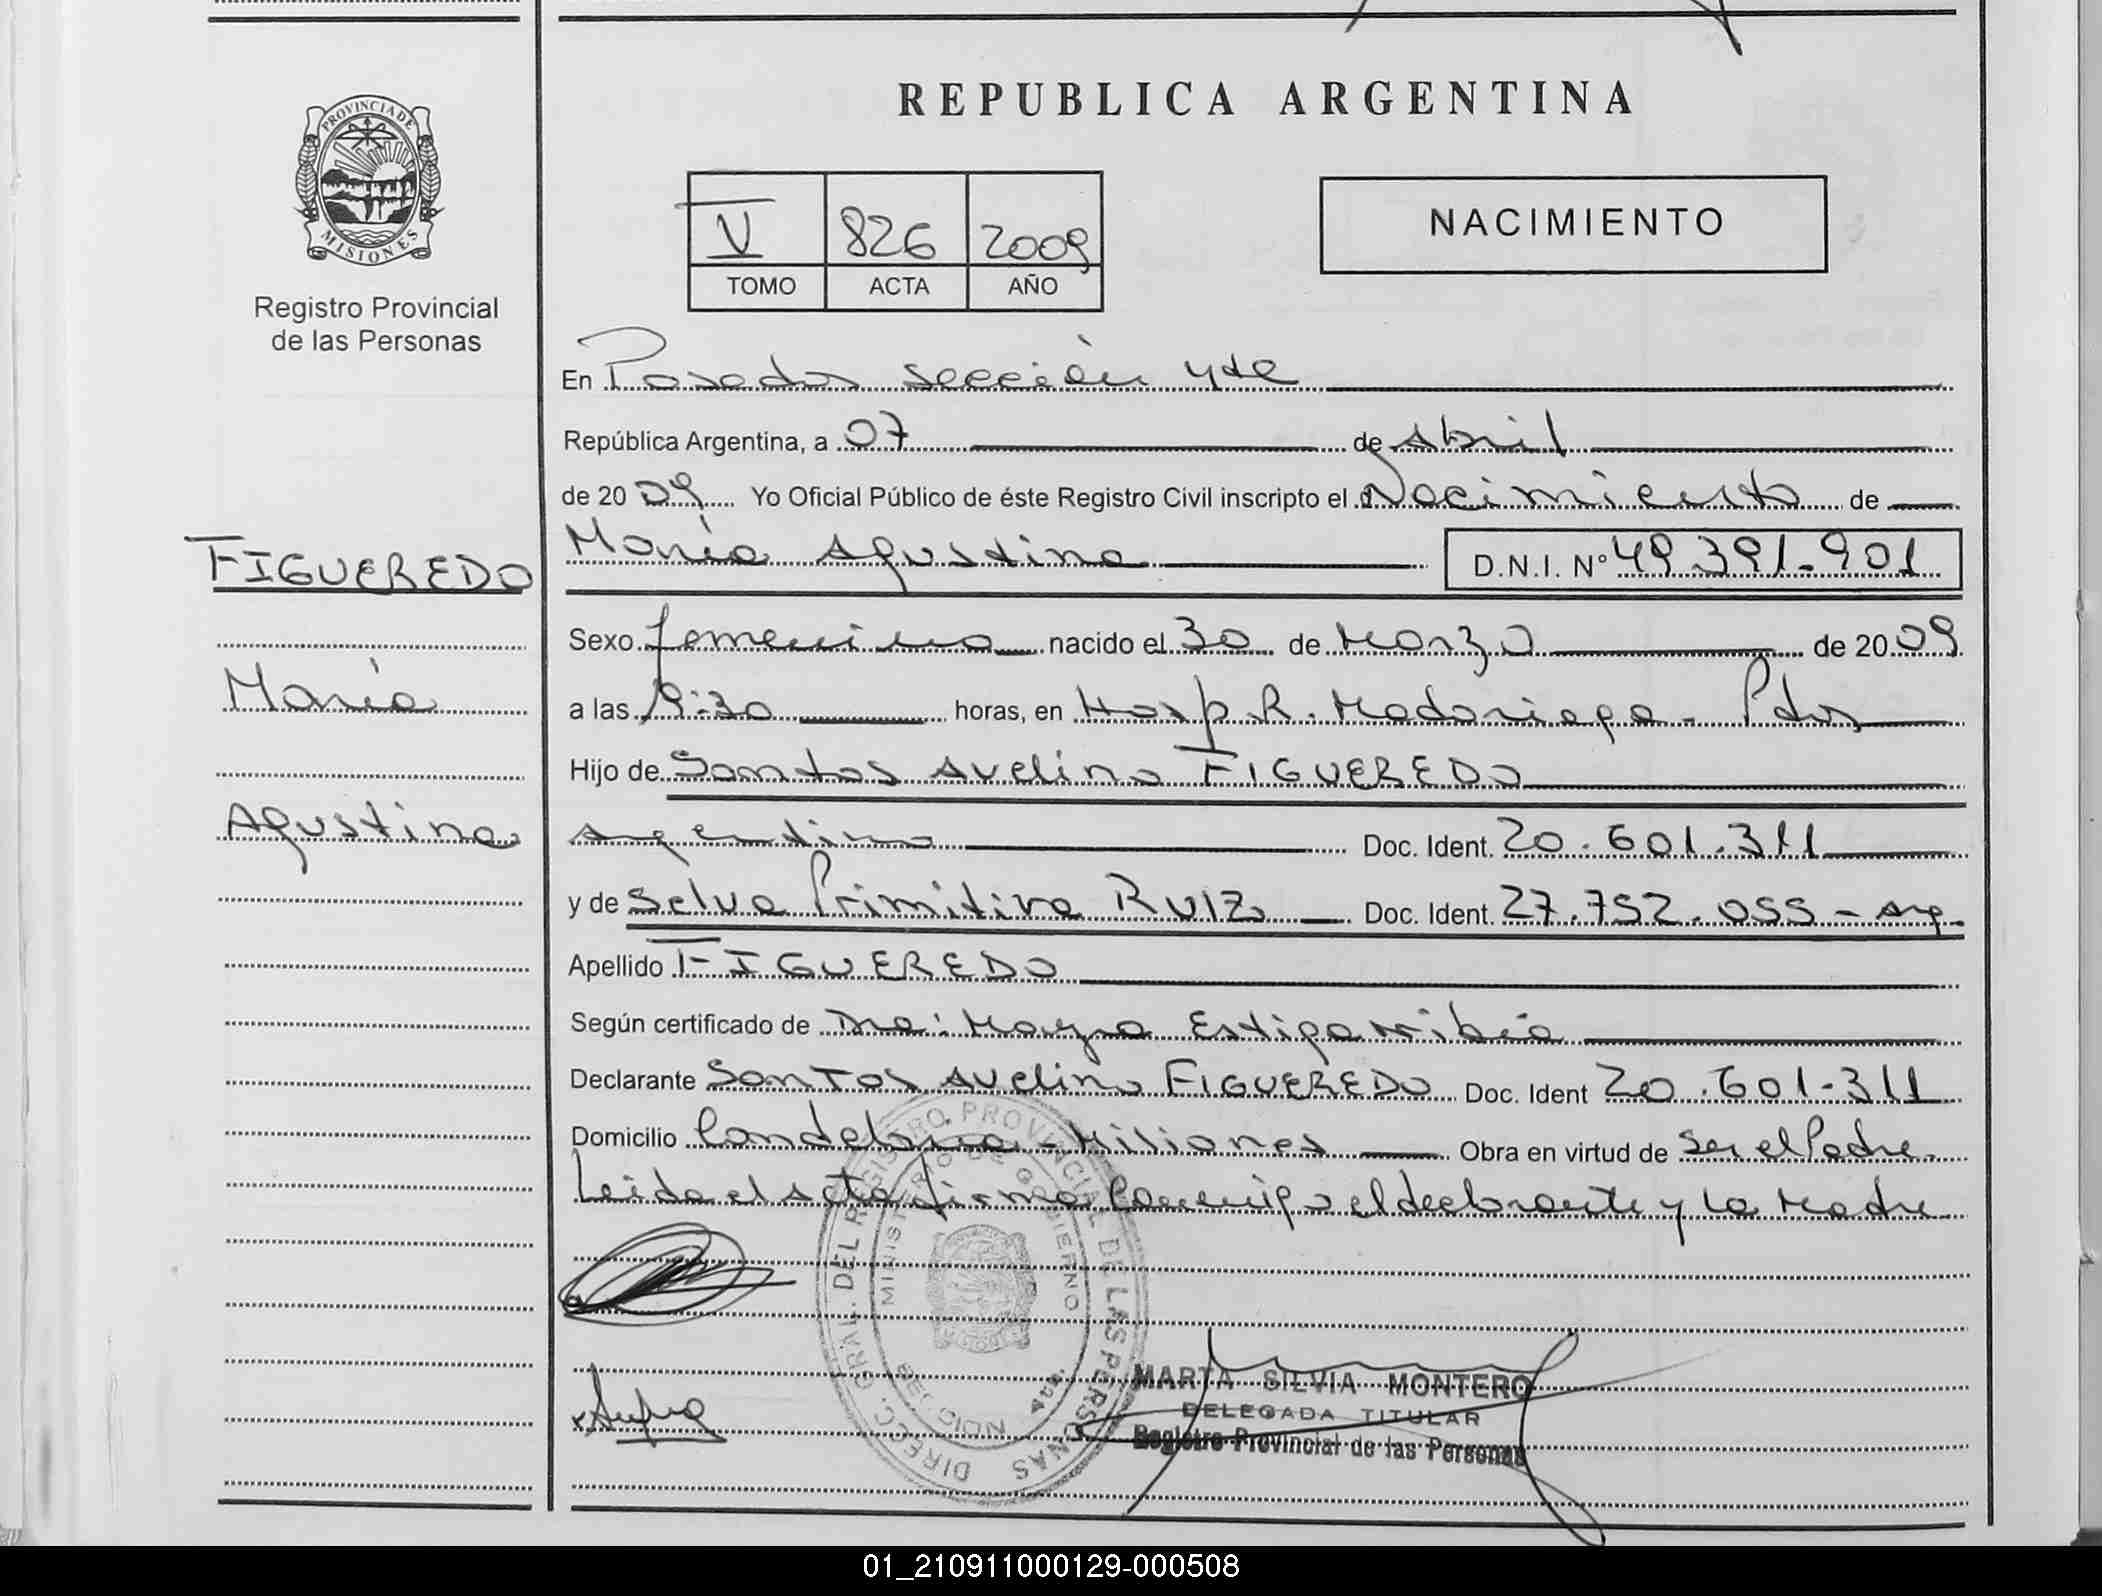 REPUBLICA ARGENTINA
PROVINCIA DE MISIONES
Registro Provincial
de las Personas
V 826 2009
TOMO ACTA AÑO
NACIMIENTO
En Posadas sección 4ta
República Argentina, a 07 de Abril
de 2009 Yo Oficial Público de éste Registro Civil inscripto el Nacimiento de
María Agustina D.N.I. Nº 49.391.901
FIGUEREDO
María
Agustina
Sexo femenino nacido el 30 de Marzo de 2009
a las 9:30 horas, en Hosp. R. Madariaga - Pdas
Hijo de Santos Avelino FIGUEREDO
Argentino Doc. Ident. 20.601.311
y de Selva Primitiva RUIZ Doc. Ident. 27.752.055 - Arg.
Apellido FIGUEREDO
Según certificado de Dra: Mayra Estigarribia
Declarante Santos Avelino FIGUEREDO Doc. Ident 20.601.311
Domicilio Candelaria - Misiones Obra en virtud de Ser el Padre
Leida el acta firma conmigo el declarante y la Madre
DIRECC. GRAL. DEL REGISTRO PROVINCIAL DE LAS PERSONAS
MINISTERIO DE GOBIERNO
MARTA SILVIA MONTERO
DELEGADA TITULAR
Registro Provincial de las Personas
01_210911000129-000508